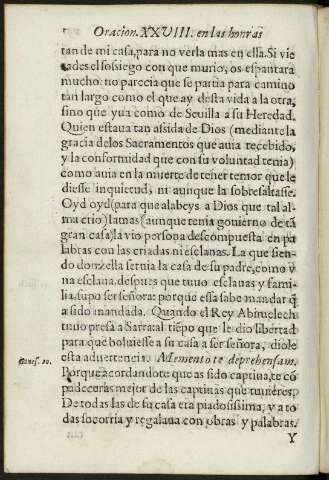 Oracion. XXVIII. en las honras
tan de mi casa, para no verla mas en ella. Si vie
rades el sossiego con que murio, os espantara
mucho. no parecia que se partia para camino
tan largo como el que ay desta vida a la otra,
sino que yua como de Seuilla a su Heredad.
Quien estaua tan assida de Dios (mediante la
gracia de los Sacramentos que auia recebido,
y la conformidad que con su voluntad tenia)
como auia en la muerte de tener temor que le
diesse inquietud, ni aunque la sobresaltasse.
Oyd oyd (para que alabeys a Dios que tal al-
ma crio) jamas (aunque tenia gouierno de tã
gran casa) la vio persona descompuesta en pa
labras con las criadas ni esclauas. La que sien-
do donzella seruia la casa de su padre, como v
na esclaua, despues que tuuo esclauas y fami-
lia, supo ser señora: porque essa sabe mandar q̃
a sido mandada. Quando el Rey Abimelech
tuuo presa a Sarra, al tiẽpo que le dio libertad
para que boluiesse a su casa a ser señora, diole
esta aduertencia. Memento te deprehensam.
Genes. 20.
Porque acordandote que as sido captiua, te cõ
padeceras mejor de las captiuas que tuuieres.
De todas las de su casa era piadosissima, y a to
das socorria y regalaua con obras y palabras.
Y